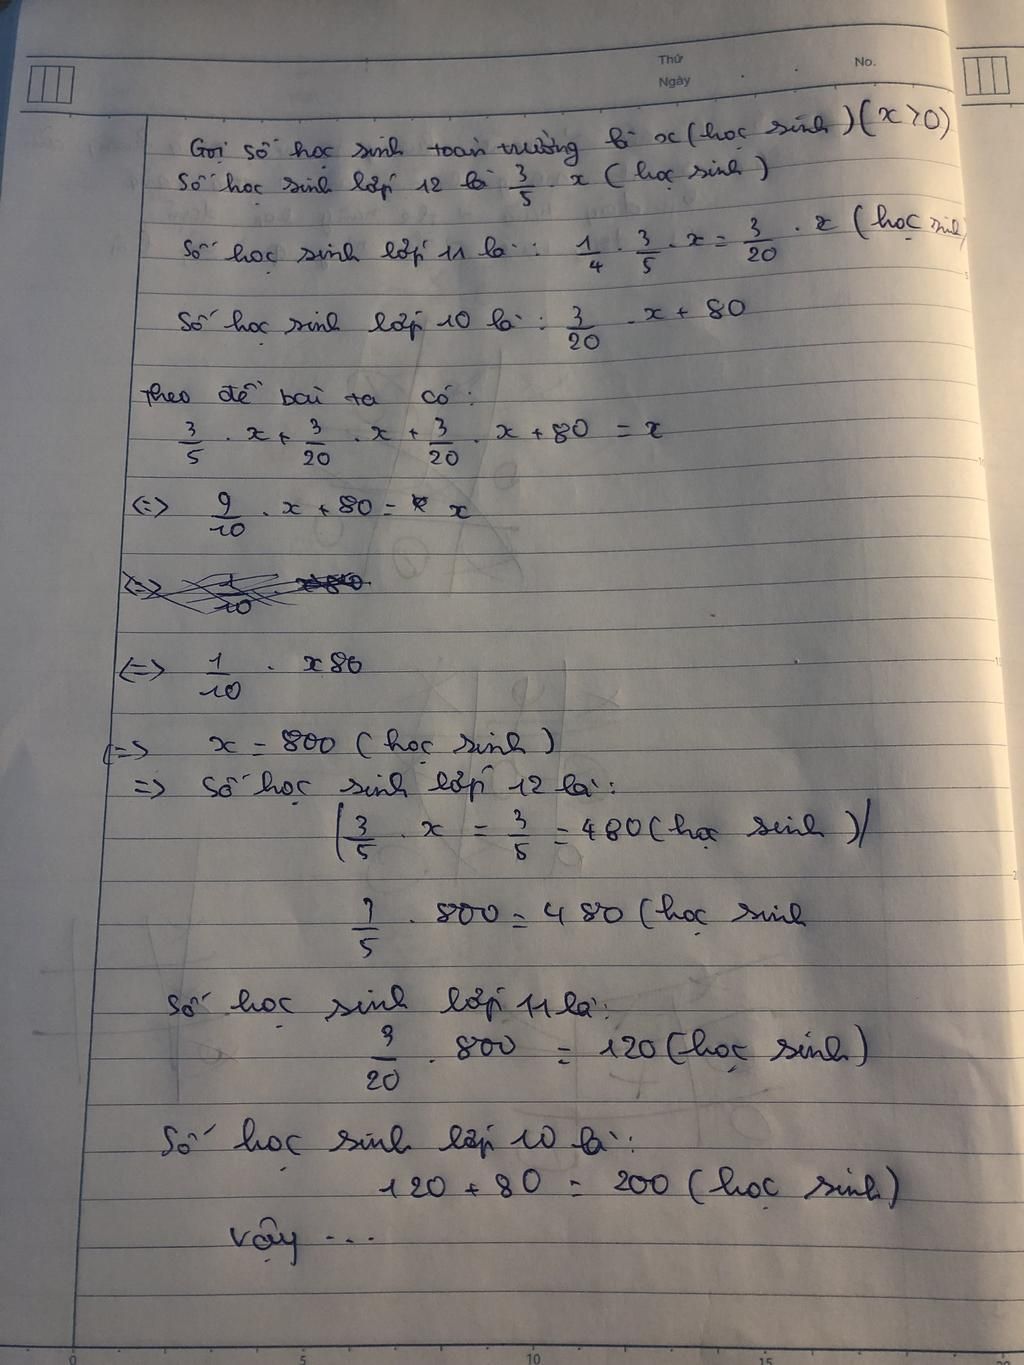 Thứ
Ngày No.
Gọi số học sinh toàn trường là x (học sinh) (x > 0)
Số học sinh lớp 12 là 3/5 . x (học sinh)
Số học sinh lớp 11 là: 1/4 . 3/5 . x = 3/20 . x (học sinh)
Số học sinh lớp 10 là: 3/20 . x + 80
Theo đề bài ta có:
3/5 . x + 3/20 . x + 3/20 . x + 80 = x
<=> 9/10 . x + 80 = x
<=> 1/10 . x 80
<=> x = 800 (học sinh)
=> Số học sinh lớp 12 là:
(3/5 . x = 3/5 = 480 (học sinh))
3/5 . 800 = 480 (học sinh
Số học sinh lớp 11 là:
3/20 . 800 = 120 (học sinh)
Số học sinh lớp 10 là:
120 + 80 = 200 (học sinh)
Vậy ...
0 5 10 15